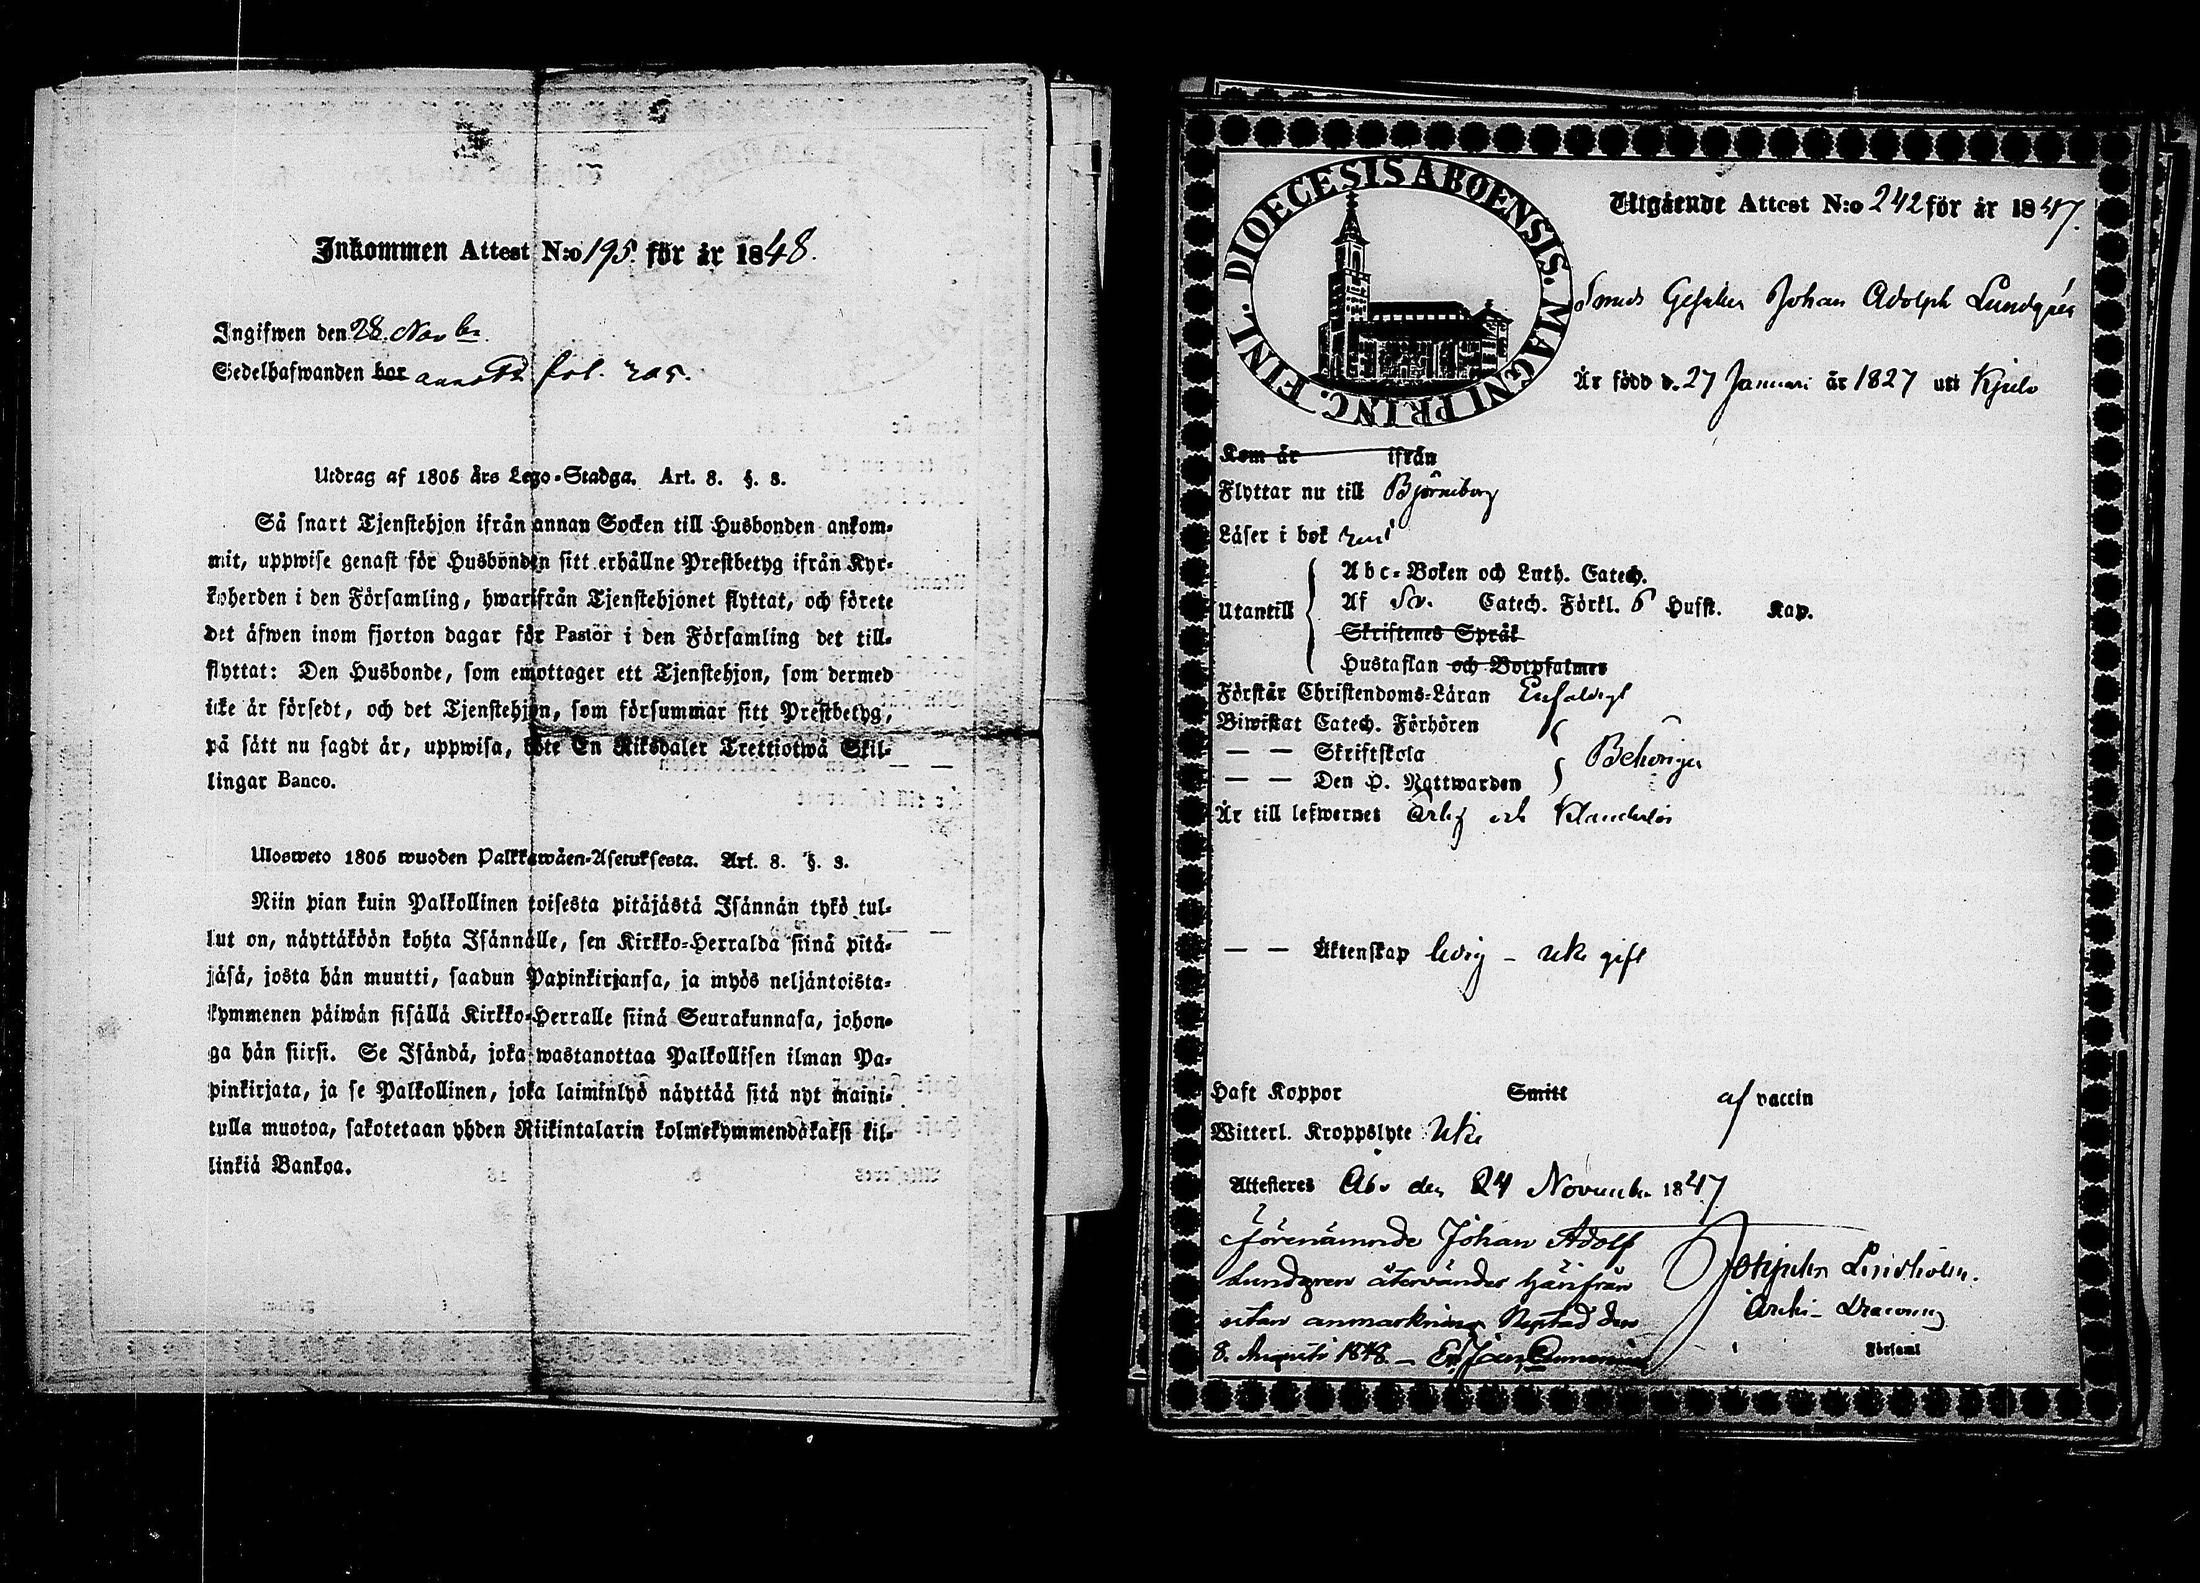 Inkommen Attest N:o 195. för år 1848.
Ingifwen den 28. Novbr
Sedelhafwanden bor fol. 205.
Utdrag af 1805 års Lego-Stadga. Art. 8. §. 3.
Så snart Tjenstehjon ifrån annan Socken till Husbonden ankom-
mit, uppwise genast för Husbonden sitt erhållne Prestbetyg ifrån Kyr-
koherden i den Församling, hwarifrån Tjenstehjonet flyttat, och förete
det äfwen inom fjorton dagar för Pastor i den Församling det till-
flyttat: Den Husbonde, som emottager ett Tjenstehjon, som dermed
icke är försedt, och det Tjenstehjon, som försummar sitt Prestbetyg,
på sätt nu sagdt är, uppwisa, böte En Riksdaler Trettiotwå Skil-
lingar Banco.
Ulosweto 1805 wuoden Palkkawäen-Asetuksesta. Art. 8. §. 3.
Niin pian kuin Palkollinen toisesta pitäjästä Isännän tykö tul-
lut on, näyttäköön kohta Isännälle, sen Kirkko-Herralda siinä pitä-
jäsä, josta hän muutti, saadun Papinkirjansa, ja myös neljäntoista-
kymmenen päiwän sisällä Kirkko-Herralle siinä Seurakunnasa, johon-
ga hän siirsi. Se Isändä, joka wastanottaa Palkollisen ilman Pa-
pinkirjata, ja se Palkollinen, joka laiminlyö näyttää sitä nyt maini-
tulla muotoa, sakotetaan yhden Riikintalarin kolmekymmendäkaksi kil-
linkiä Bankoa.
DIOECESIS ABOENSIS. MAGNI PRINC. FINL.
Utgående Attest N:o 242 för år 1847.
Smeds Gesällen Johan Adolph Lundgrén
Är född d. 27 Januari år 1827 uti Kjulo
Kom år ifrån
Flyttar nu till Björneborg
Läser i bok rent
Utantill
Abc-Boken och Luth. Catech.
Af Sv. Catech. Förkl. 6 Hufst. Kap.
Skriftenes Språk
Hustaflan och Botpsalmer
Förstår Christendoms-Läran Enfaldigt
Biwistat Catech. Förhören
— — Skriftskola Behörigen
— — Den H. Nattwarden
Är till lefwernet Ärlig och Klanderlös
— — Äktenskap ledig – icke gift
Haft Koppor Smitt af vaccin
Witterl. Kroppslyte Icke
Attesteras Åbo den 24 November 1847
Förenämnde Johan Adolf
Lundgren återvänder härifrån
utan anmärkning den
8. Augusti 1848. –
Lindholm.
Församl